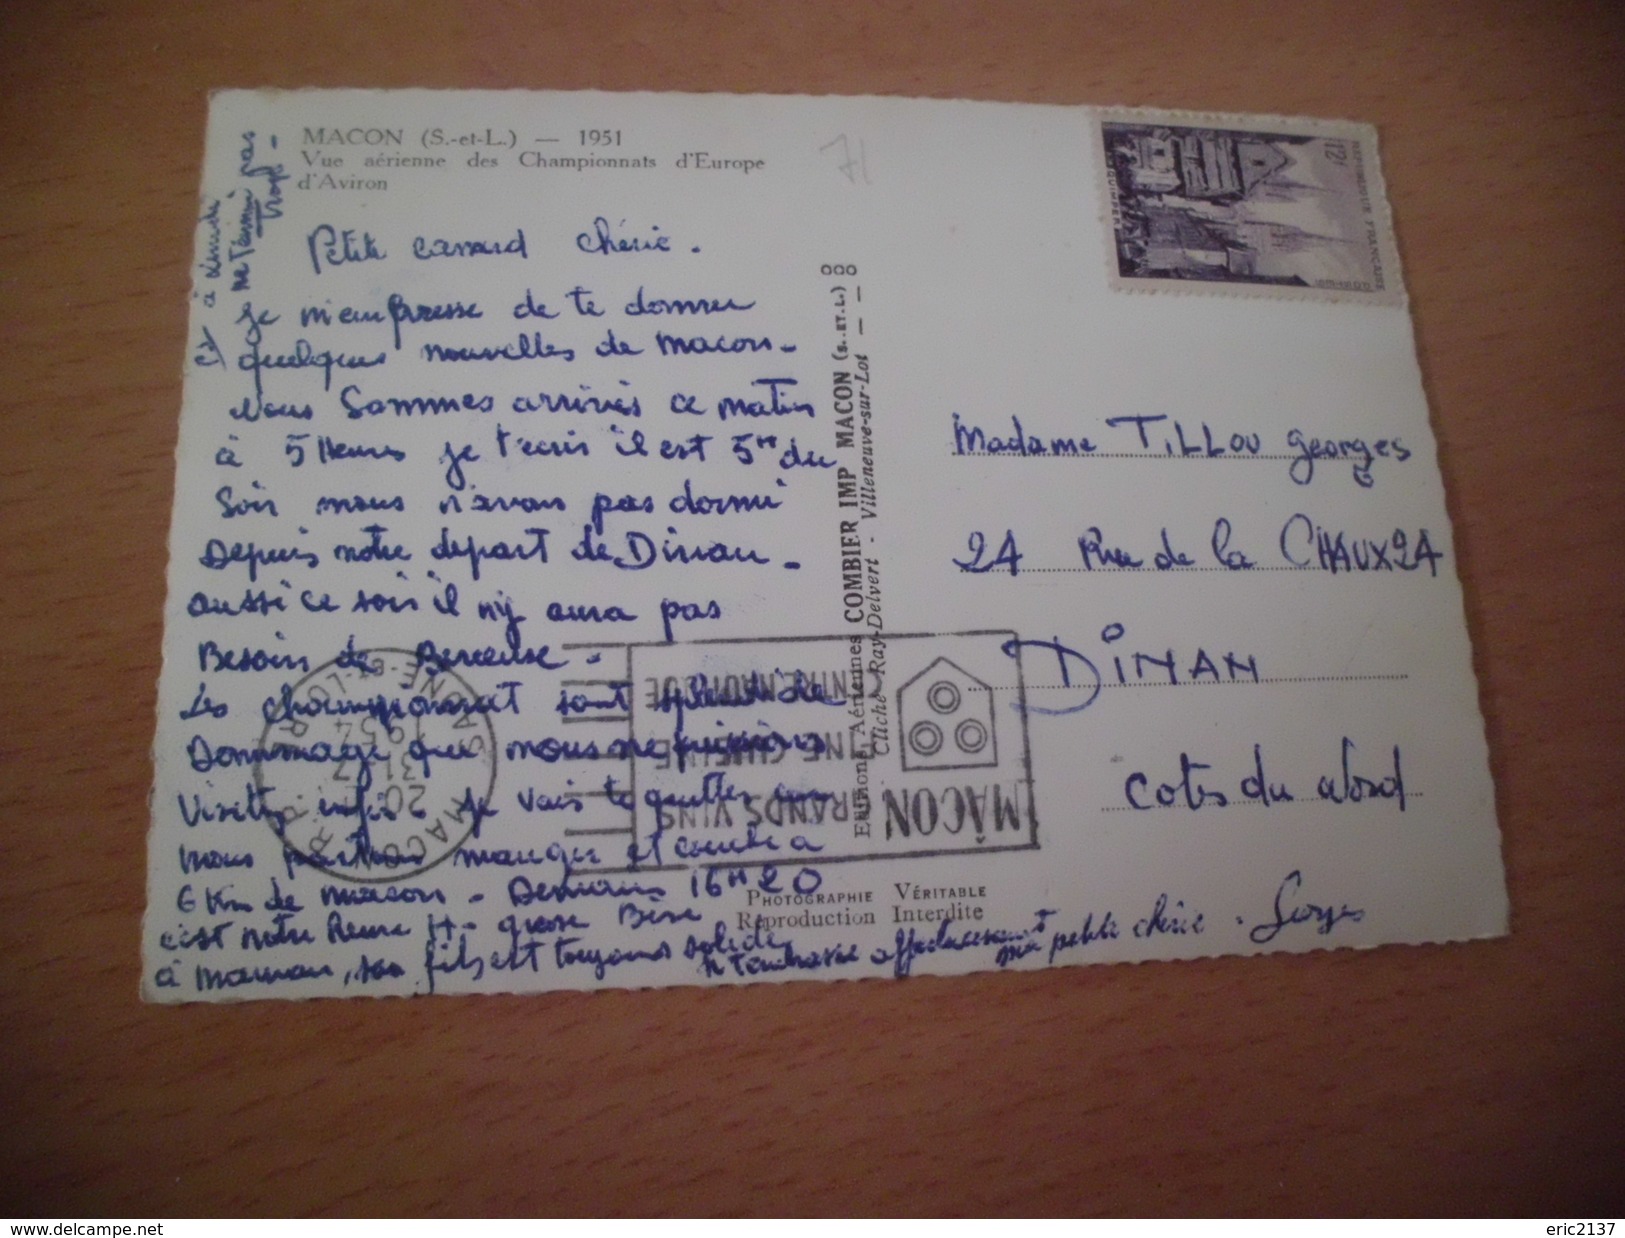 MACON (S.-et-L.) — 1951
Vue aérienne des Championnats d'Europe
d'Aviron
71
Petite canard chérie.
Je m'empresse de te donner
quelques nouvelles de Macon-
Nous Sommes arrivés ce matin
à 5 Heures je t'ecris il est 5H du
Soir nous n'avons pas dormi
Depuis notre depart de Dinan -
aussi ce soir il n'y aura pas
Besoin de Berceuse -
Les championnat sont splendide
Dommage que nous ne puissions
Visiter je vais te quitter
nous partons manger et couché a
6 Km de Macon - Demain 16H20
c'est notre Heure H - grosse Bise
à Maman, son fils est toujours solide
t'embrasse affectueusement
ma petite chérie. Georges
et à Lundi
ne t'ennui pas
trop -
COMBIER IMP MACON (S.-ET-L.)
Cliché Ray-Delvert - Villeneuve-sur-Lot
PHOTOGRAPHIE VÉRITABLE
Reproduction Interdite
12F
REPUBLIQUE FRANCAISE
QUIMPER
Madame TILLOU Georges
24 Rue de la CHAUX 24
DINAN
Cotes du Nord
MÂCON
GRANDS VINS
FINE CUISINE
CENTRE NAUTIQUE
MACON R.P.
20
31-7
1954
SAONE-ET-LOIRE
www.delcampe.net
eric2137